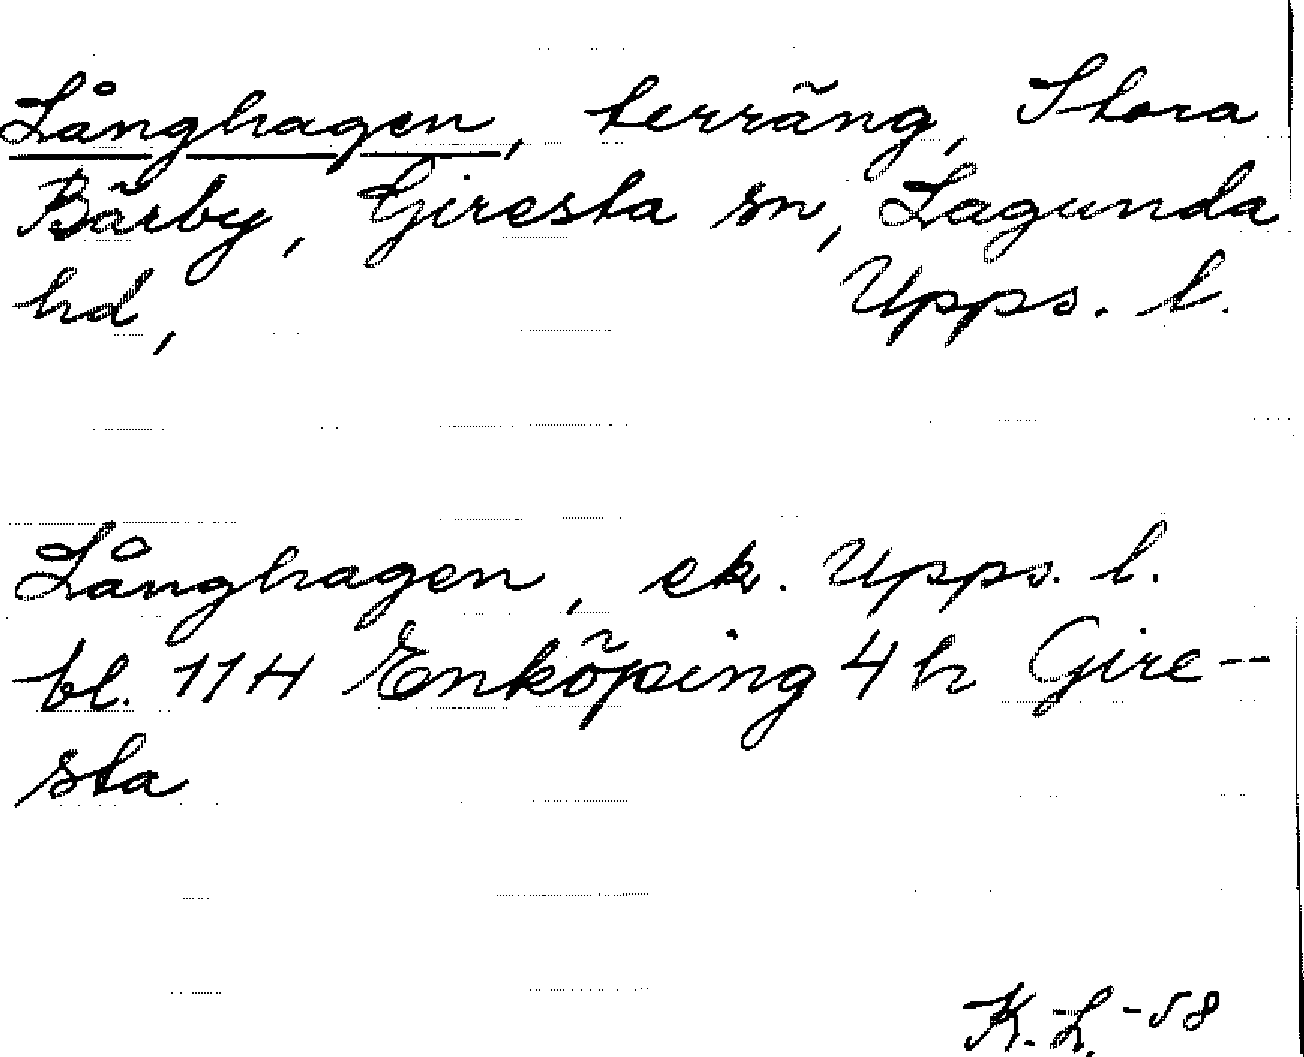 Långhagen, terräng, Stora
Bärby, Giresta sn, Lagunda
hd, Upps. l.
Långhagen, ek. Upps. l.
bl. 114 Enköping 4 h Gire-
sta
K.-L. -58